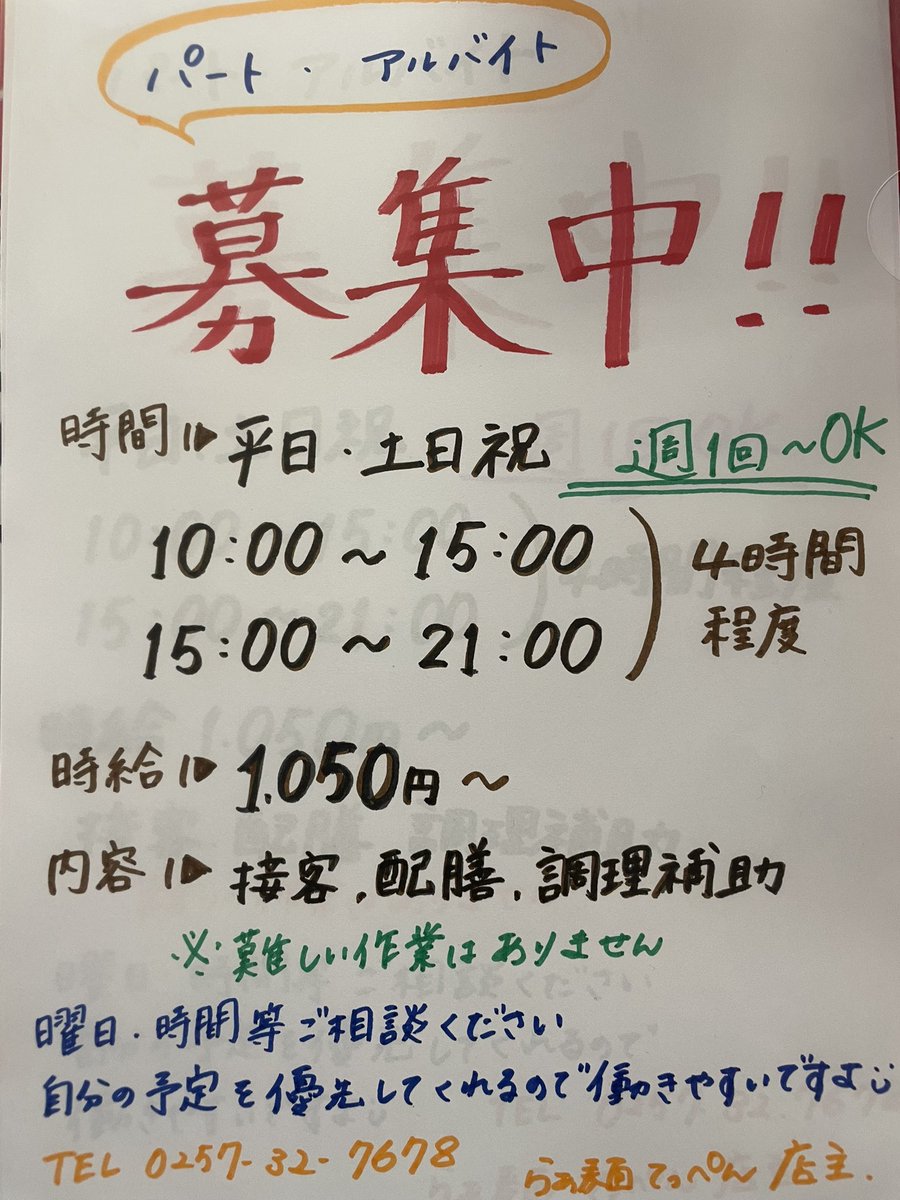 パート・アルバイト
募集中!!
時間 平日・土日祝 週1回～OK
10:00～15:00
15:00～21:00
4時間
程度
時給 1.050円～
内容 接客、配膳、調理補助
※難しい作業はありません
曜日・時間等ご相談ください
自分の予定を優先してくれるので働きやすいですよ
TEL 0257-32-7678 らぁ麺てっぺん 店主.